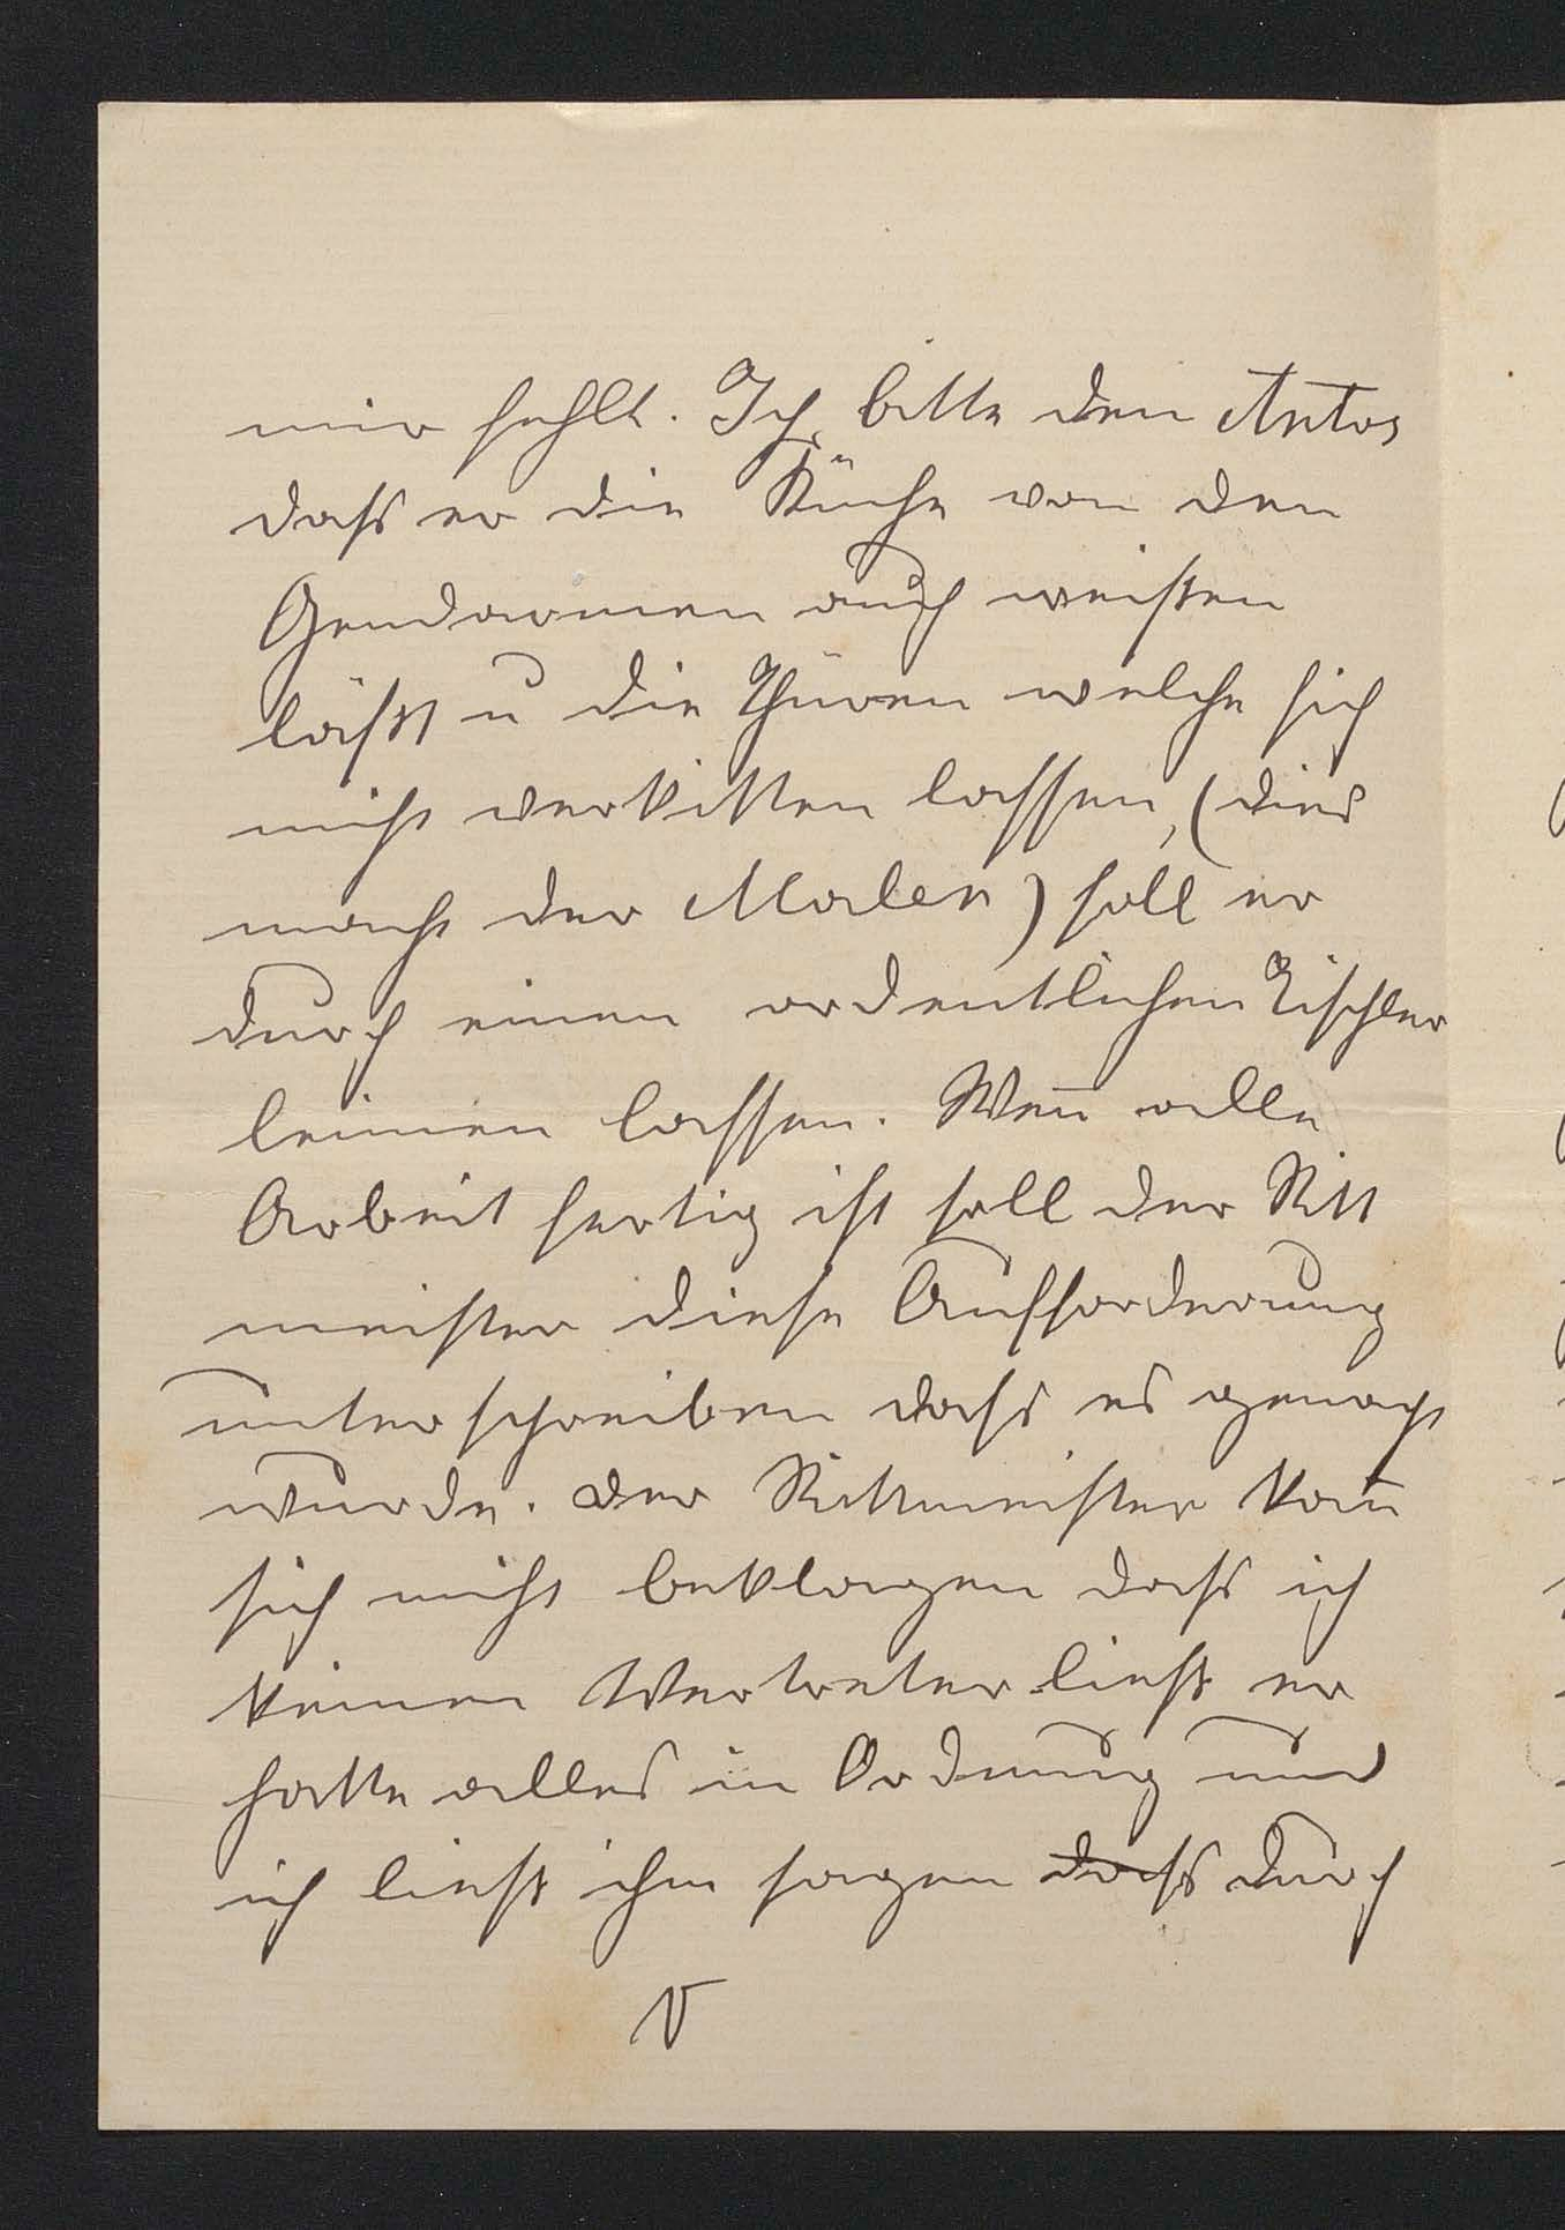 mir fehlt. Ich bitte den Antos
dass er die Küche von den
Gendarmen auch weißen
läßt u die Thüren welche sich
nicht verkitten lassen, (dies
macht der Maler) soll er
durch einen ordentlichen Tischler
leimen lassen. Wen̄ alle
Arbeit fertig ist soll der Ritt
meister diese Aufforderung
unterschreiben dass es gemacht
wurde. Der Rittmeister kan̄
sich nicht beklagen dass ich
keinen Vertreter ließ er
hatte alles in Ordnung und
ich ließ ihm sagen dass durch